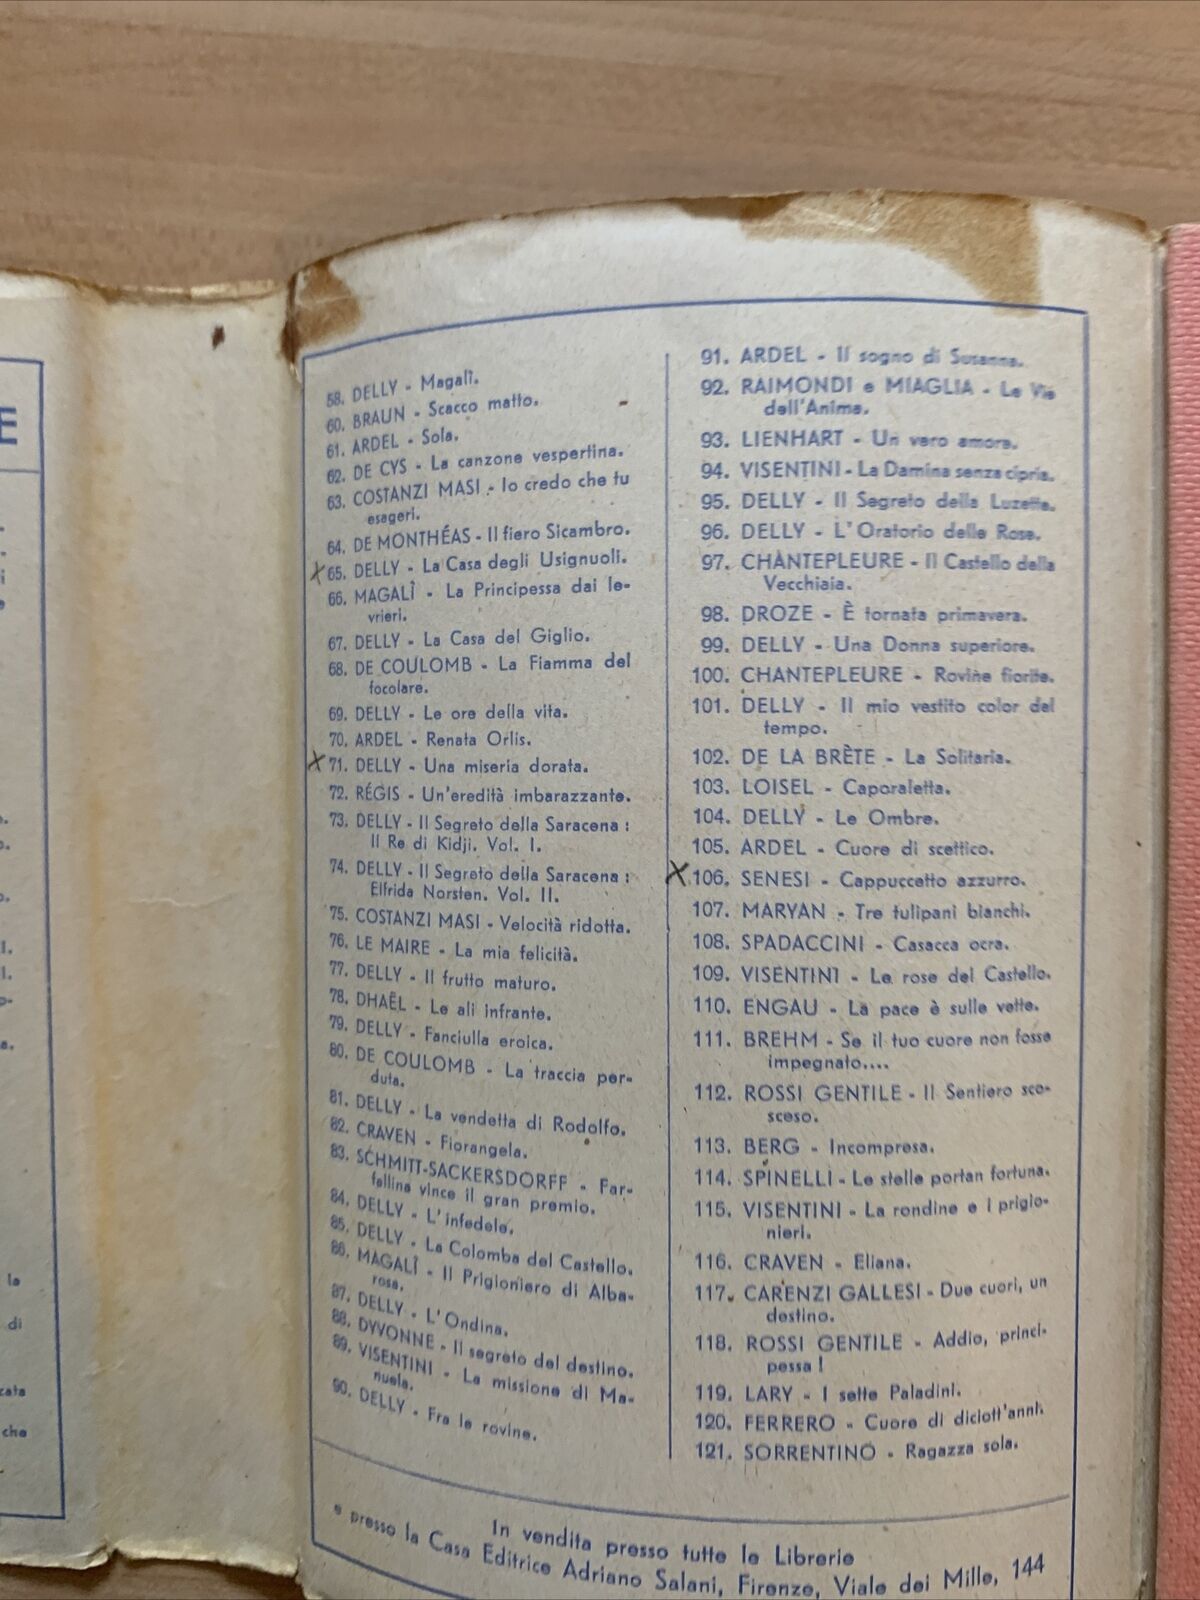 E
la
di
che
58. DELLY - Magalì.
60. BRAUN - Scacco matto.
61. ARDEL - Sola.
62. DE CYS - La canzone vespertina.
63. COSTANZI MASI - Io credo che tu
esageri.
64. DE MONTHÉAS - Il fiero Sicambro.
X 65. DELLY - La Casa degli Usignuoli.
66. MAGALÌ - La Principessa dai le-
vrieri.
67. DELLY - La Casa del Giglio.
68. DE COULOMB - La Fiamma del
focolare.
69. DELLY - Le ore della vita.
70. ARDEL - Renata Orlis.
X 71. DELLY - Una miseria dorata.
72. RÉGIS - Un'eredità imbarazzante.
73. DELLY - Il Segreto della Saracena :
Il Re di Kidji. Vol. I.
74. DELLY - Il Segreto della Saracena :
Elfrida Norsten. Vol. II.
75. COSTANZI MASI - Velocità ridotta.
76. LE MAIRE - La mia felicità.
77. DELLY - Il frutto maturo.
78. DHAËL - Le ali infrante.
79. DELLY - Fanciulla eroica.
80. DE COULOMB - La traccia per-
duta.
81. DELLY - La vendetta di Rodolfo.
82. CRAVEN - Fiorangela.
83. SCHMITT-SACKERSDORFF - Far-
fallina vince il gran premio.
84. DELLY - L'infedele.
85. DELLY - La Colomba del Castello.
86. MAGALÌ - Il Prigioniero di Alba-
rosa.
87. DELLY - L'Ondina.
88. DYVONNE - Il segreto del destino.
89. VISENTINI - La missione di Ma-
nuela.
90. DELLY - Fra le rovine.
91. ARDEL - Il sogno di Susanna.
92. RAIMONDI e MIAGLIA - Le Vie
dell'Anima.
93. LIENHART - Un vero amore.
94. VISENTINI - La Damina senza cipria.
95. DELLY - Il Segreto della Luzette.
96. DELLY - L'Oratorio delle Rose.
97. CHANTEPLEURE - Il Castello della
Vecchiaia.
98. DROZE - È tornata primavera.
99. DELLY - Una Donna superiore.
100. CHANTEPLEURE - Rovine fiorite.
101. DELLY - Il mio vestito color del
tempo.
102. DE LA BRÈTE - La Solitaria.
103. LOISEL - Caporaletta.
104. DELLY - Le Ombre.
105. ARDEL - Cuore di scettico.
X 106. SENESI - Cappuccetto azzurro.
107. MARYAN - Tre tulipani bianchi.
108. SPADACCINI - Casacca ocra.
109. VISENTINI - Le rose del Castello.
110. ENGAU - La pace è sulle vette.
111. BREHM - Se il tuo cuore non fosse
impegnato....
112. ROSSI GENTILE - Il Sentiero sco-
sceso.
113. BERG - Incompresa.
114. SPINELLI - Le stelle portan fortuna.
115. VISENTINI - La rondine e i prigio-
nieri.
116. CRAVEN - Eliana.
117. CARENZI GALLESI - Due cuori, un
destino.
118. ROSSI GENTILE - Addio, princi-
pessa !
119. LARY - I sette Paladini.
120. FERRERO - Cuore di diciott'anni.
121. SORRENTINO - Ragazza sola.
In vendita presso tutte le Librerie
e presso la Casa Editrice Adriano Salani, Firenze, Viale dei Mille, 144